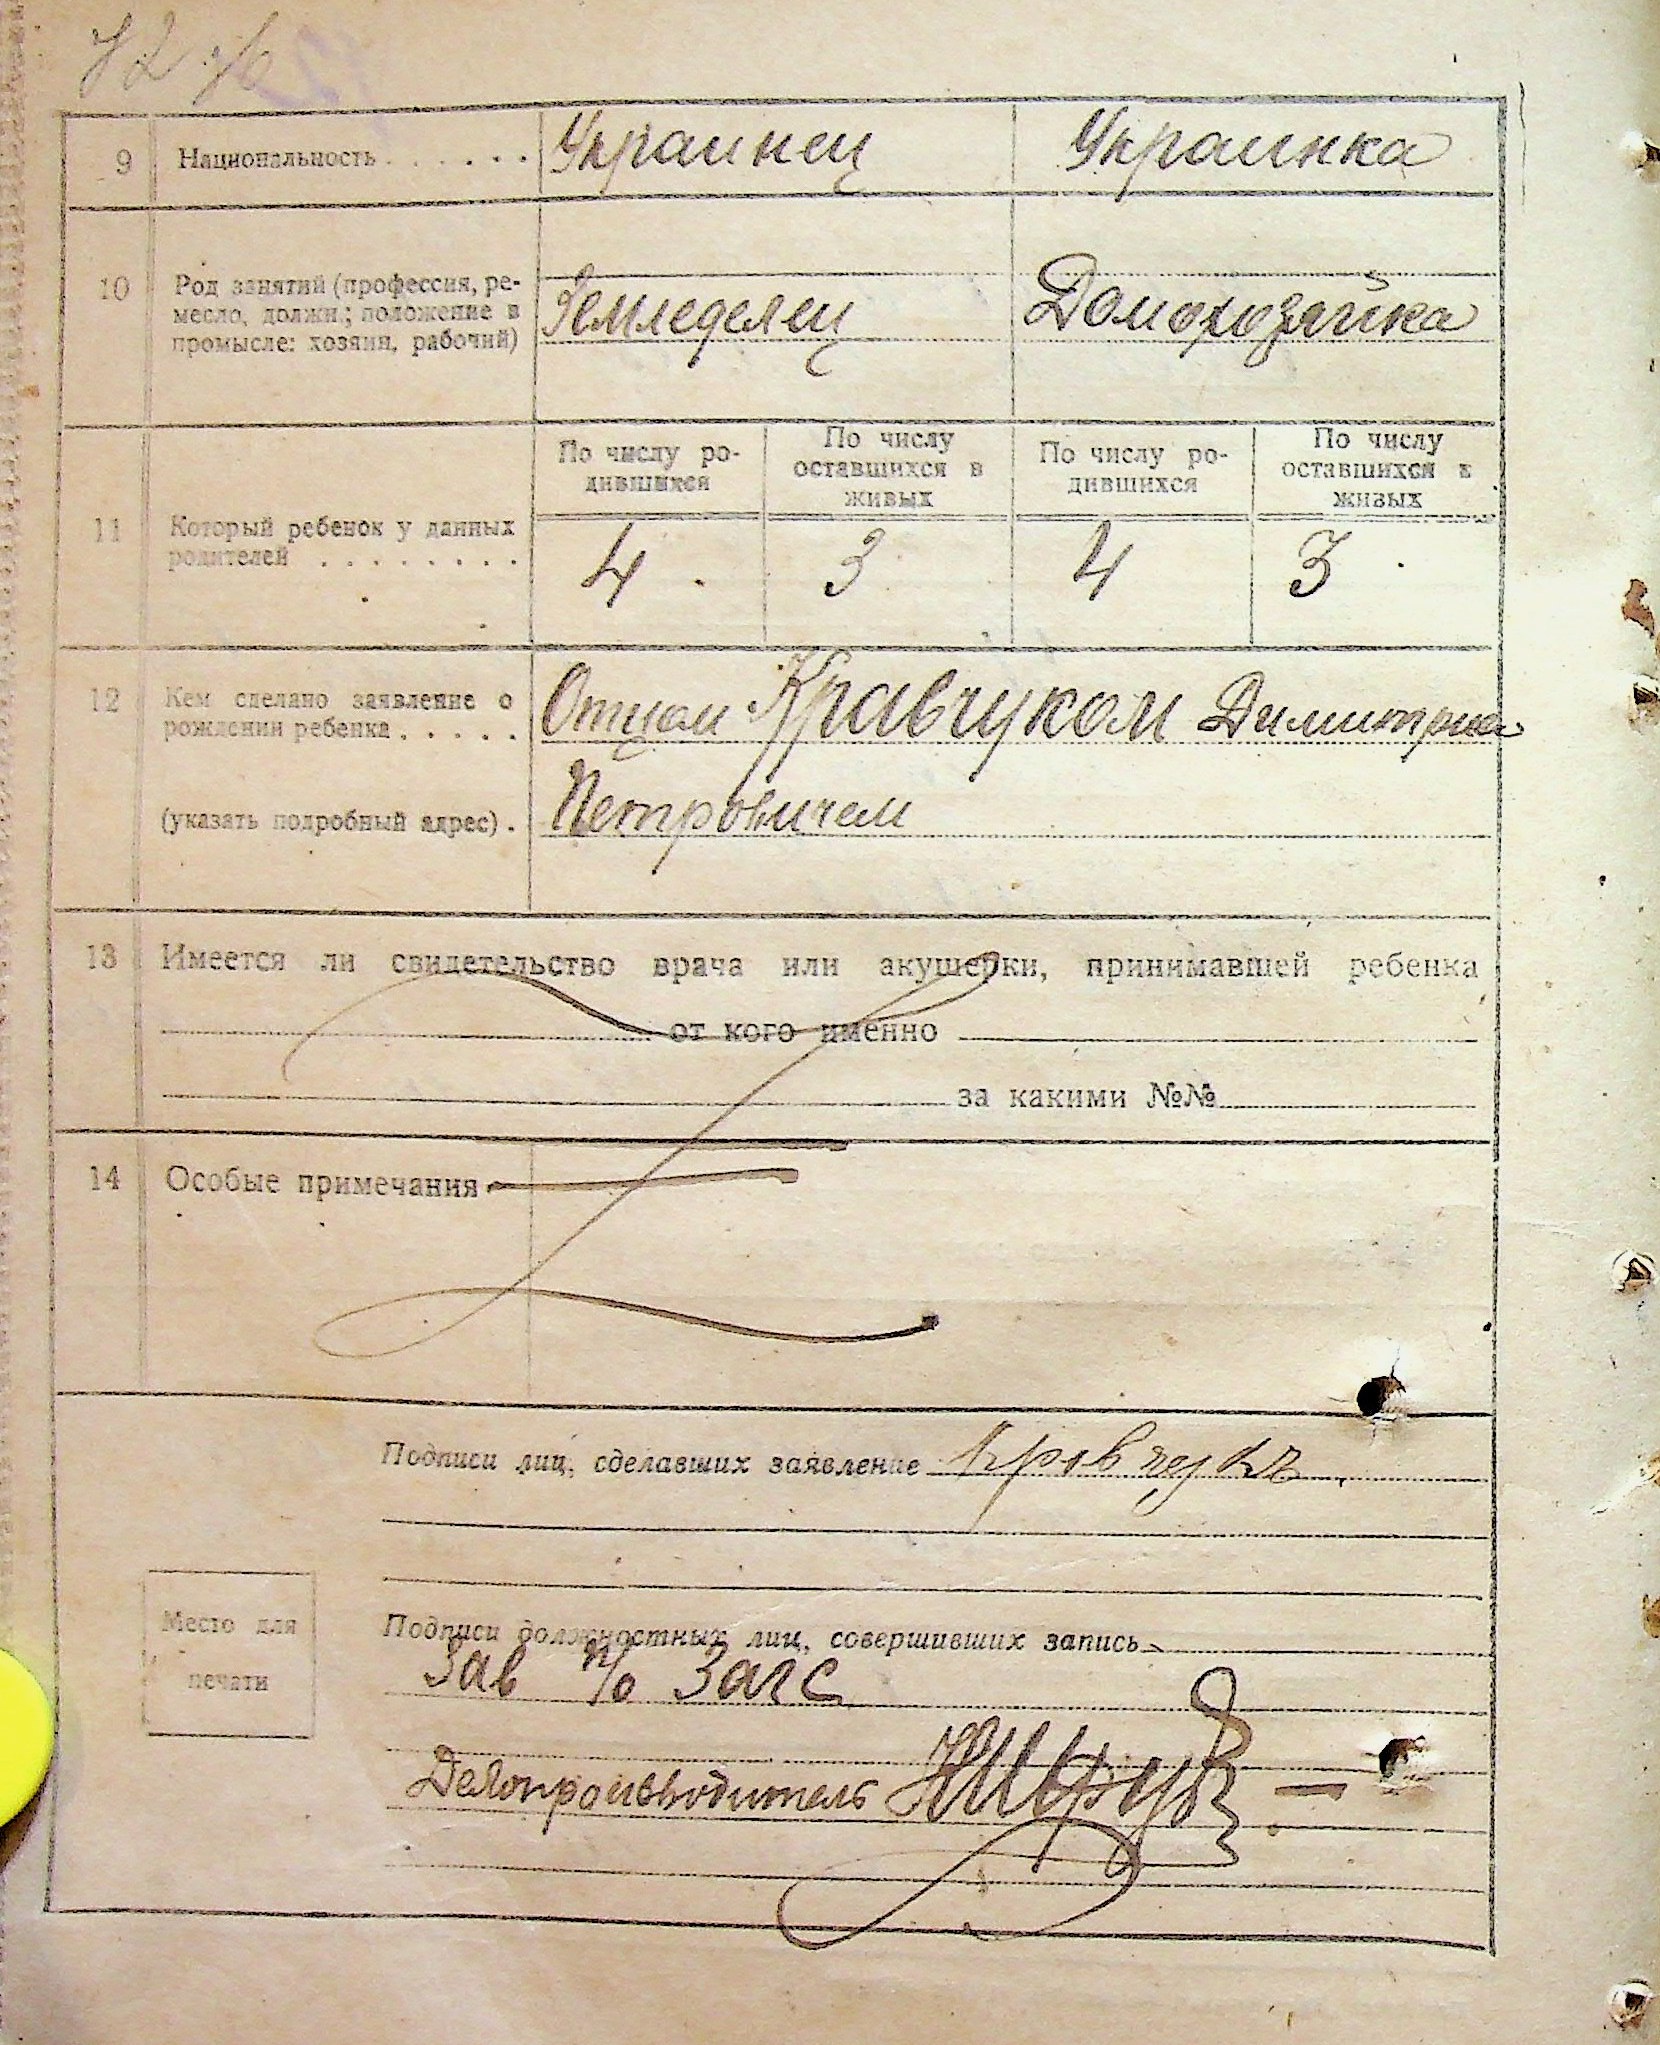 9 Национальность . . . . . . Украинец Украинка
10 Род занятий (профессия, ре-
месло, должн.; положение в
промысле: хозяин, рабочий)
Земледелец Домохозяйка
По числу ро-
дившихся
По числу
оставшихся в
живых
По числу ро-
дившихся
По числу
оставшихся в
живых
11 Который ребенок у данных
родителей . . . . . . . .
4 3 4 3
12 Кем сделано заявление о
рождении ребенка . . . . .
Отцом Кравчуком Димитрием
(указать подробный адрес) . Петровичем
13 Имеется ли свидетельство врача или акушерки, принимавшей ребенка
от кого именно
за какими №№
14 Особые примечания
Подписи лиц, сделавших заявление Кровчукъ
Место для
печати
Подписи должностных лиц, совершивших запись
Зав п/о Загс
Делопроизводитель